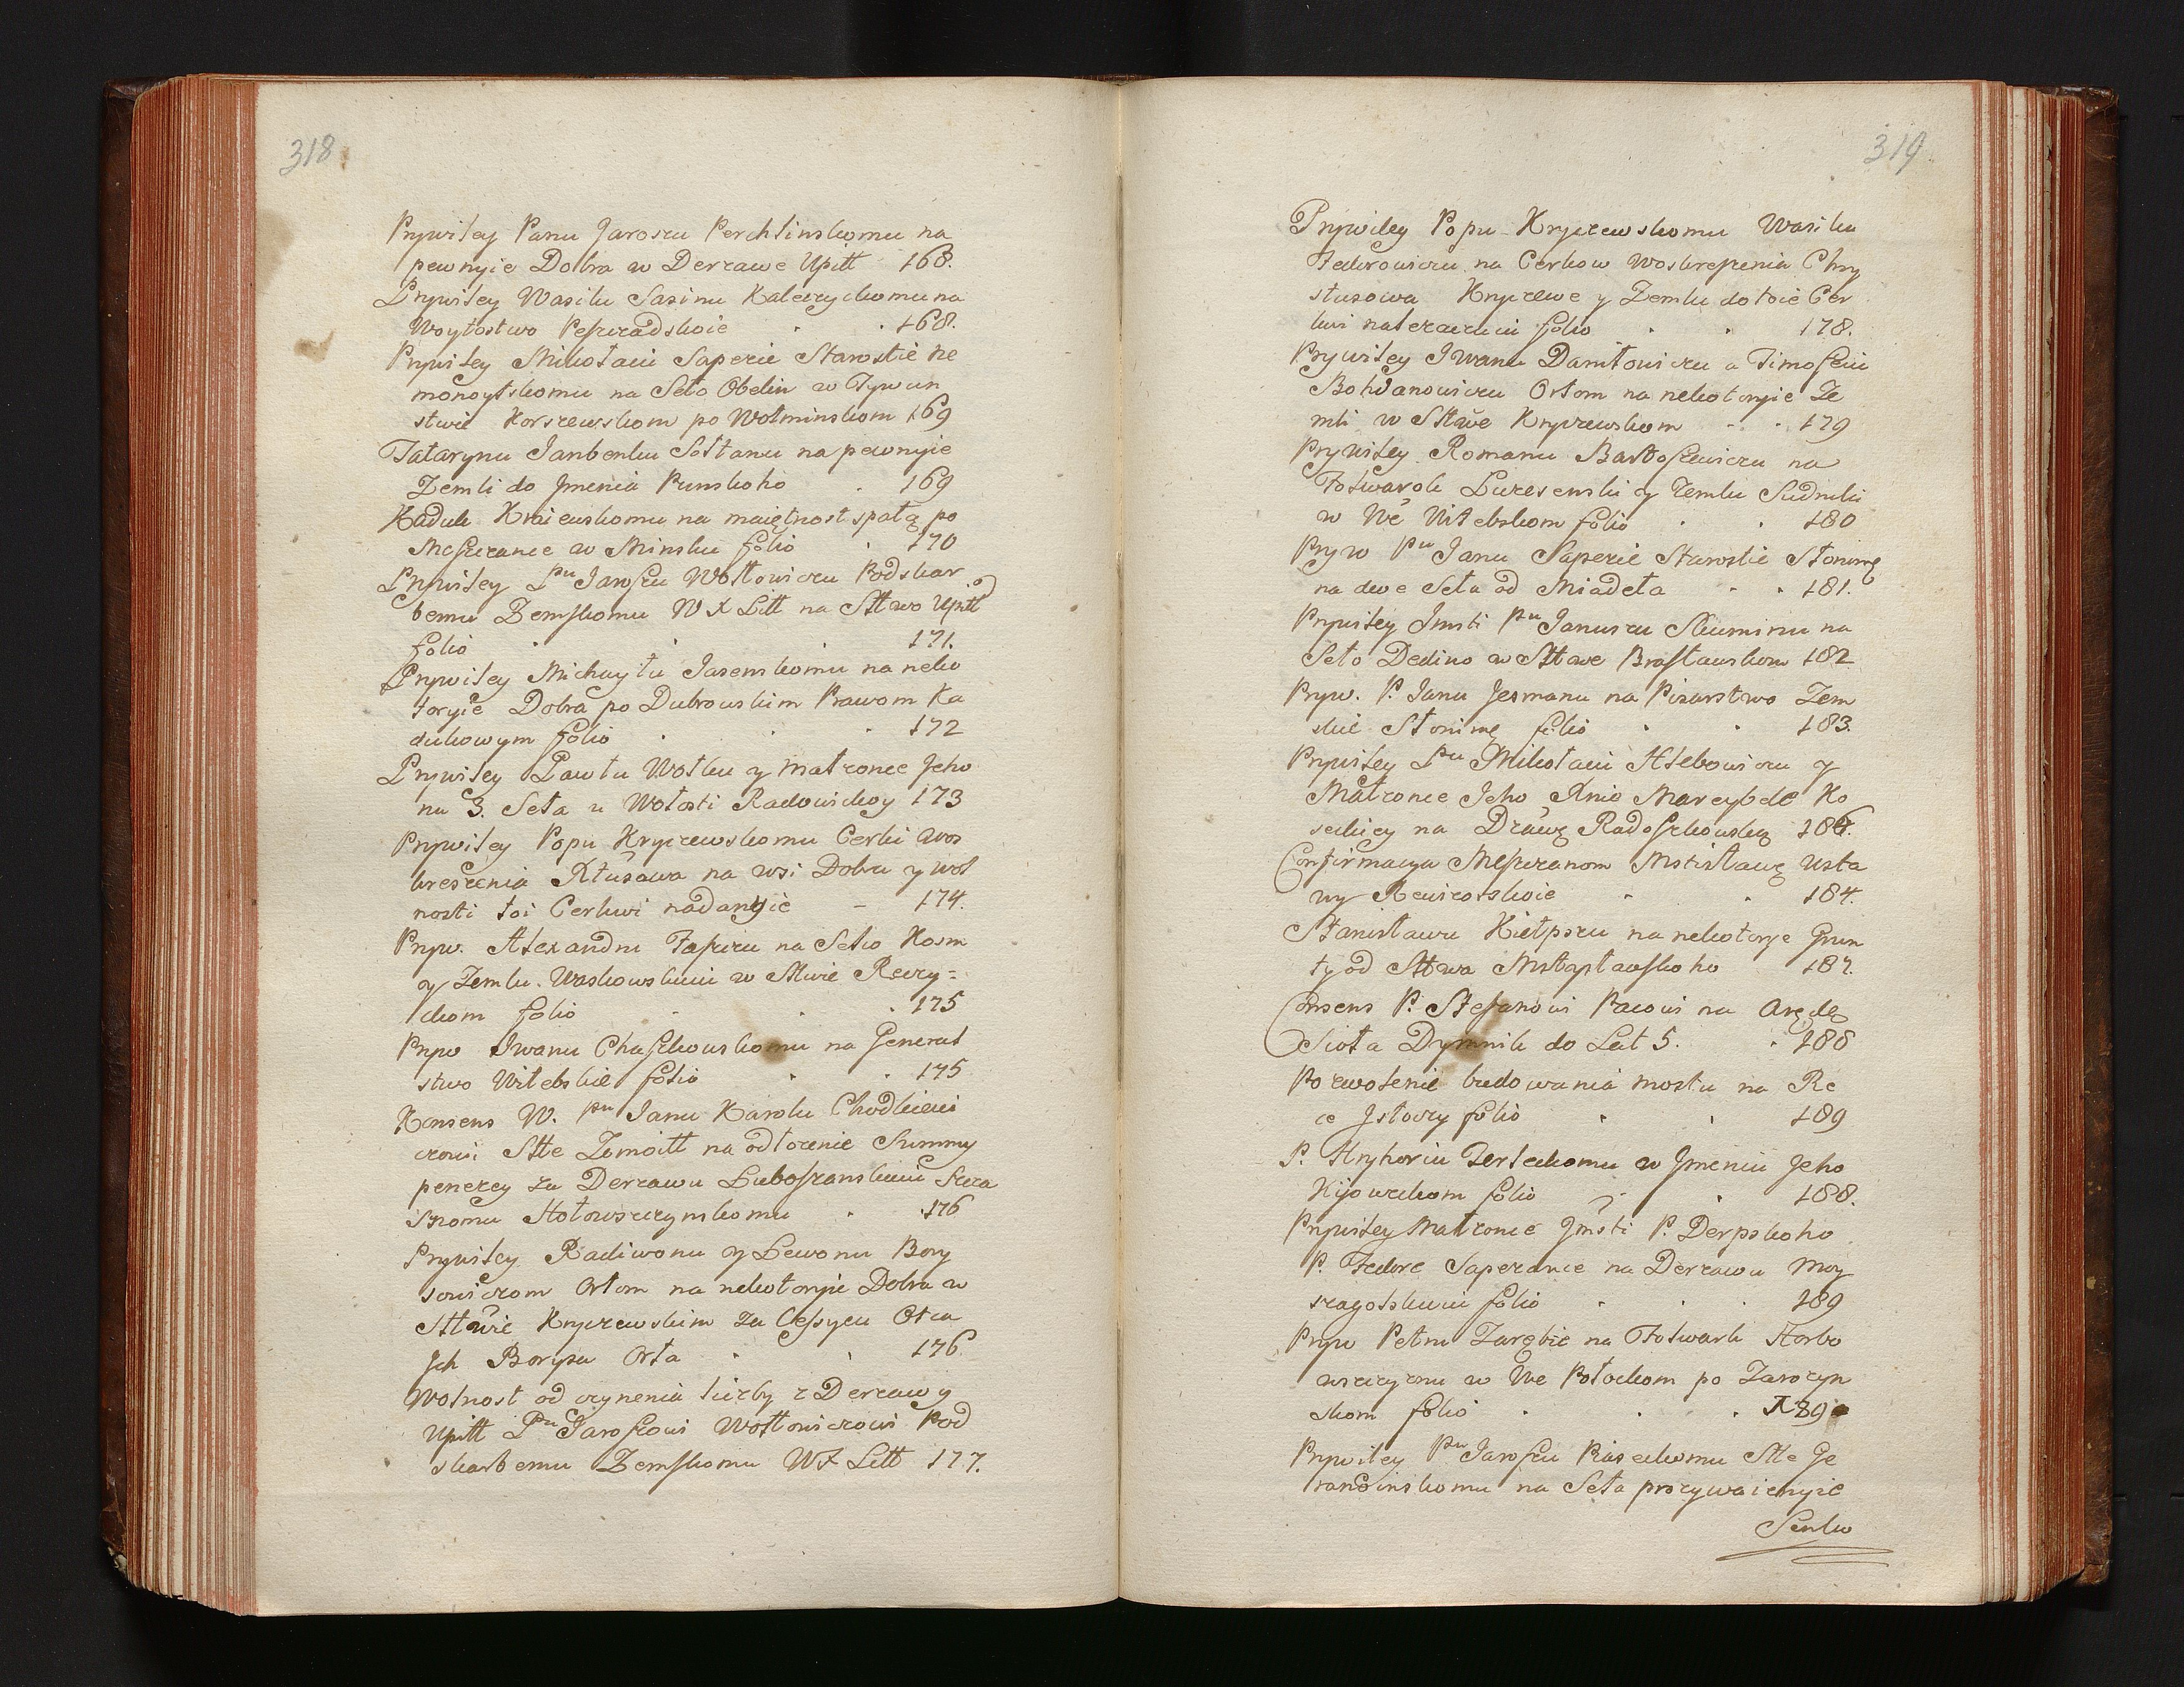 318
Prywiley Panu Jaroszu Perchlinskomu na
pewnyie Dobra w Derzawe Upitt 168.
Prywiley Wasilu Sasinu Kaleczyckomu na
Woytostwo Peszczadskoie . . 168.
Prywiley Mikołaiu Sapezie Starostie Re
monoytskomu na Seło Obelin w Tywun
stwie Korszewskom po Wołminskom 169
Tatarynu Janbenku Sołtanu na pewnyie
Zemli do Jmenia Punskoho . 169
Kaduk Kraiewskomu na maiętnost spałą po
Meszczance w Minsku folio . 170
Prywiley Pnu Jaroszu Wołłowiczu Podskar
bemu Zemskomu W X Litt na Sttwo Upitt
folio . . . 171.
Prywiley Michayłu Jasenskomu na neko
toryie Dobra po Dubrowskim Prawom Ka
dukowym folio . . . 172
Prywiley Pawłu Wołku y małzonce Jeho
na 3. Seła u Wołosti Radowickoy 173
Prywiley Popu Kryczewskomu Cerkwi Wos
kresenia Xtusowa na wsi Dobra y wol
nosti toi Cerkwi nadanyie - 174.
Pryw. Alexandru Faszczu na Selco Kosm
y Zemlu Waskowskuiu w Sttwie Reczy=
ckom folio . . . 175
Pryw Iwanu Chaszkowskomu na Generał
stwo Witebskie folio . . 175
Konsens W. Pnu Janu Karolu Chodkiewi
czowi Stte Zomoitt na odłoczenie Summy
penezey za Derzawu Luboszanskuiu Szcza
snomu Hołowszczynskomu . . 176
Prywiley Radiwonu y Lewonu Bory
sowiczom Orłom na nekotoryie Dobra w
Sttwie Kryczewskim za Cessyeu Otca
Jch Borysa Orła . . 176
Wolnost od czynenia liczby z Derzawy
Upitt Pnu Jaroszowi Wołłowiczowi Pod
skarbemu Zemskomu WX Litt 177.
319
Prywiley Popu Kryczewskomu Wasilu
Fedorowiczu na Cerkow Woskresenia Chry
stusowa Kryczewe y Zemlu do toie Cer
kwi należaczuiu folio . . 178.
Prywiley Iwanu Daniłowiczu a Timoszeiu
Bohdanowiczu Orłom na nekotoryie Ze
mli w Sttwe Kryczewskom . . 179
Prywiley Romanu Bartoszewiczu na
Folwarok Luzesenski y Zemlu Sudniki
w We Witebskom folio . . 180
Pryw Pnu Janu Sapezie Starostie Słonimę
na dwe Seła od Miadeła . . 181.
Prywiley Jmsti Pnu Januszu Skuminu na
Seło Dedino w Sttwe Brasławskom 182
Pryw. P. Janu Jesmanu na Pisarstwo Zem
skie Słonimę folio . . 183.
Prywiley Pnu Mikołaiu Hlebowiczu y
Małzonce Jeho Xnie Marcybele Ko
reckiey na Dzawę Radoszkowskę 186.
Confirmacya Meszczanom Mstisławę Usta
wy Rewizorskoie . . 184.
Stanisławu Kiełpszu na nekotorye Grun
ty od Sttwa Mstysławskoho 187.
Consens P. Stefanowi Pacowi na Arędę
Sioła Dymnik do Lat 5. . 188
Pozwolenie budowania mostu na Re
ce Jsłoczy folio . . 189
P. Hryhoriu Terleckomu w Jmeniu Jeho
Kijoweckom folio . . 188.
Prywiley Małzonce Jmsti P. Derpskoho
P. Fedore Sapezance na Derzawu Moy
szagolskuiu folio . . . 189
Pryw Petru Zarębie na Folwark Horbo
wszczyznu w We Połockom po Zawczyn
skom folio . . . 189
Prywiley Pnu Jaroszu Piaseckomu Stte Ge
ranoinskomu na Seła prozywaiemyie
Senko